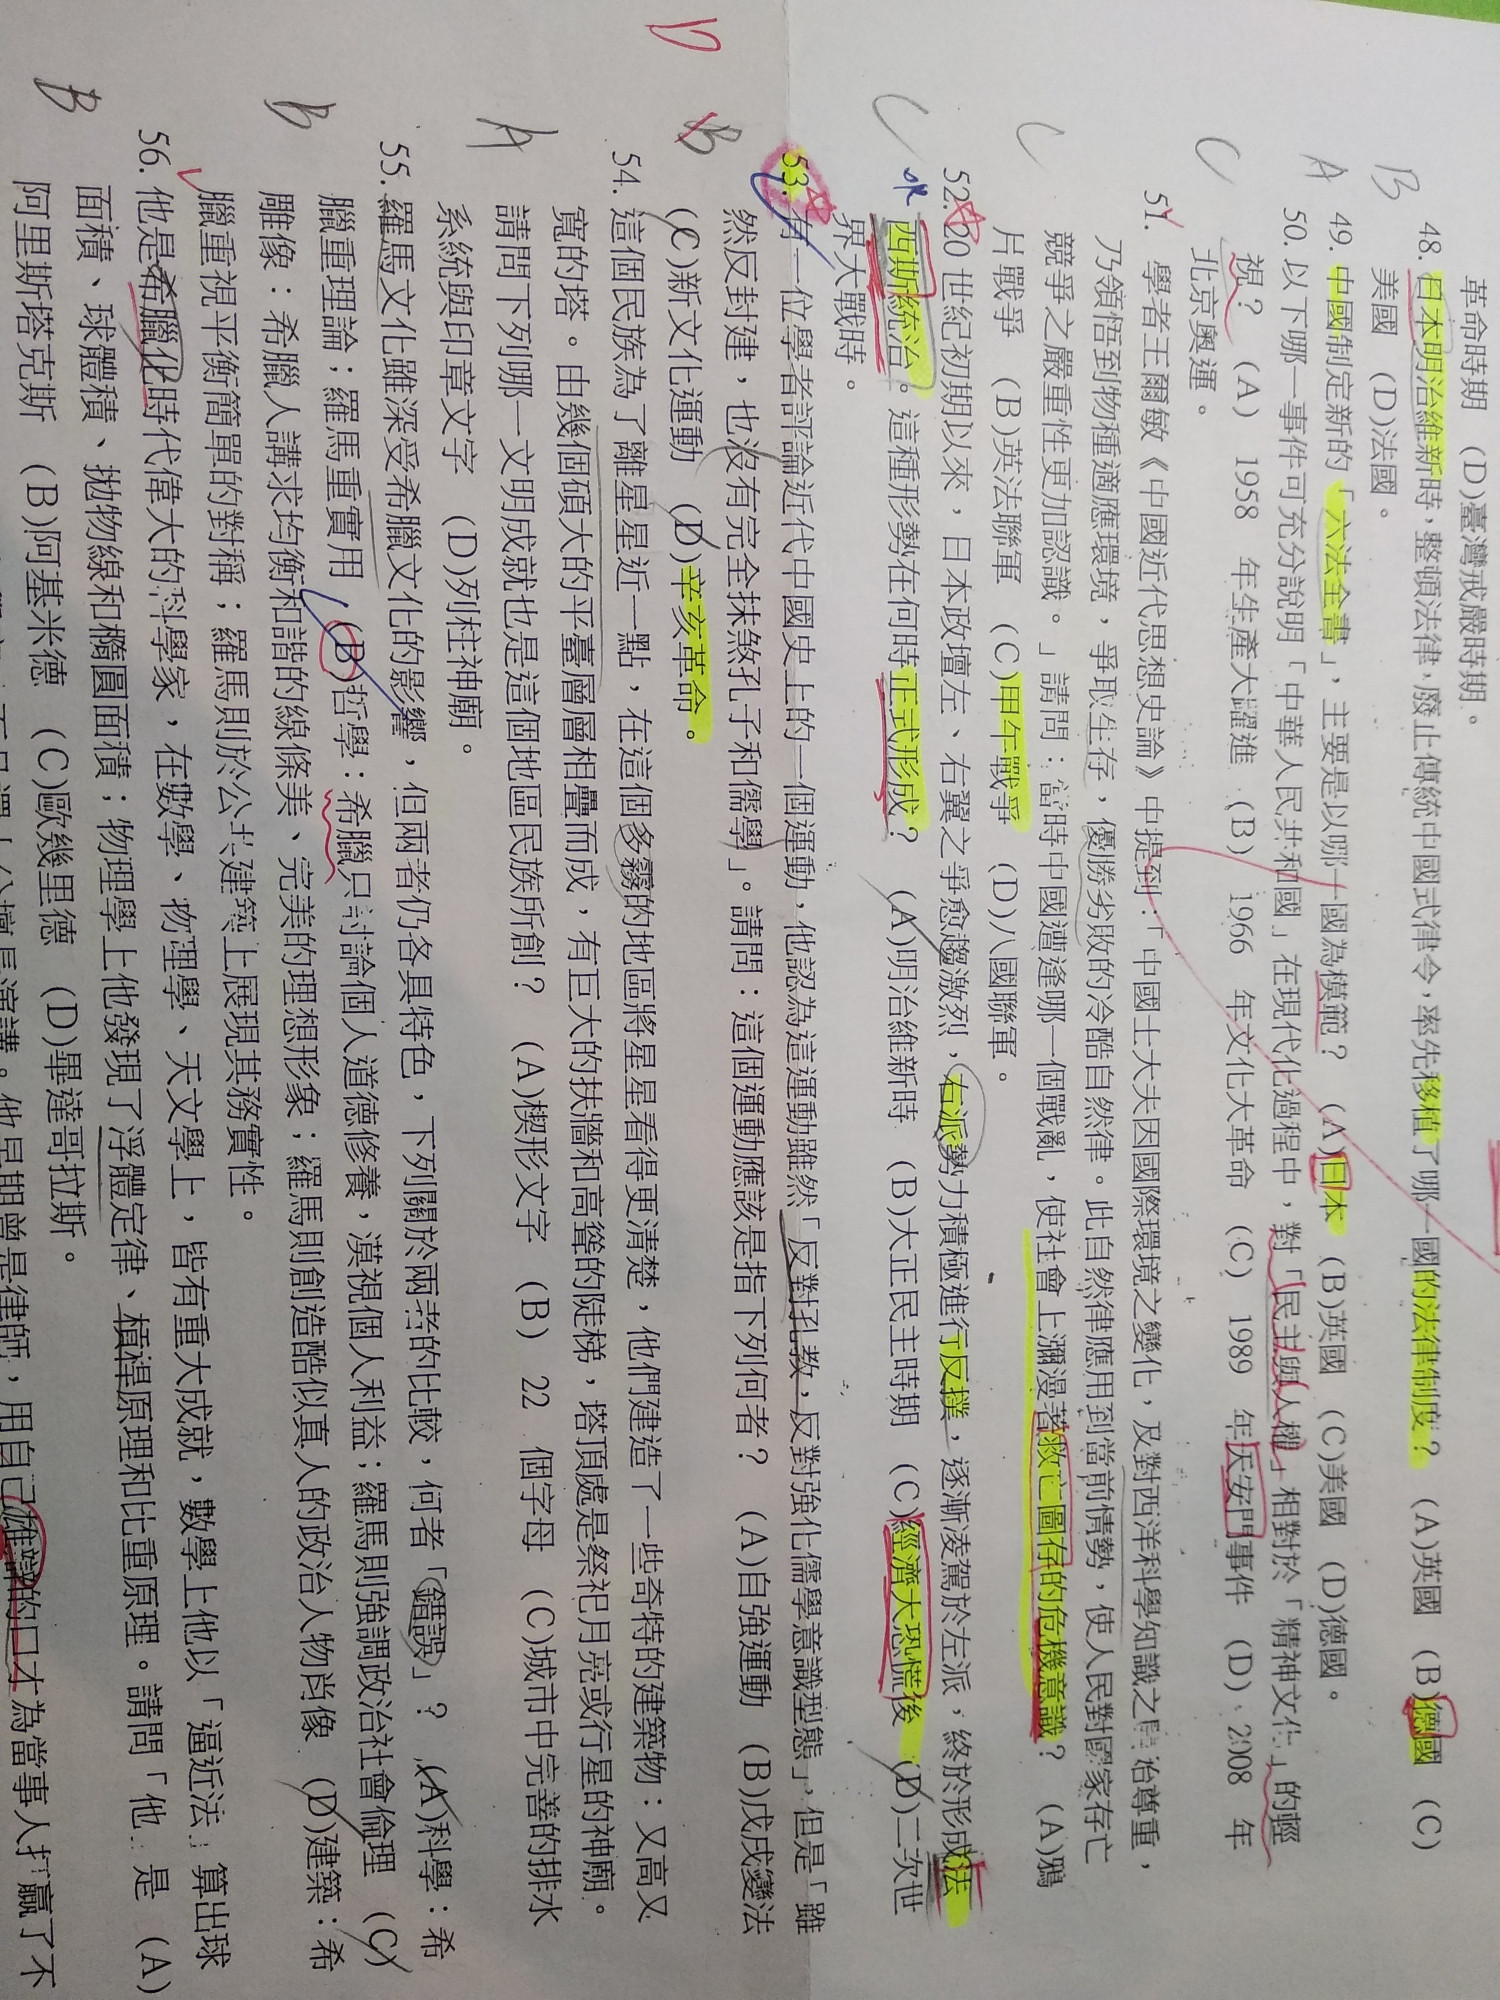 革命時期　(D)臺灣戒嚴時期。
B 48.日本明治維新時，整頓法律，廢止傳統中國式律令，率先移植了哪一國的法律制度？　(A)英國　(B)德國　(C)
美國　(D)法國。
A 49.中國制定新的「六法全書」，主要是以哪一國為模範？　(A)日本　(B)英國　(C)美國　(D)德國。
C 50.以下哪一事件可充分說明「中華人民共和國」在現代化過程中，對「民主與人權」相對於「精神文化」的輕
視？　(A)　1958　年生產大躍進　(B)　1966　年文化大革命　(C)　1989　年天安門事件　(D)、2008　年
北京奧運。
C 51.　學者王爾敏《中國近代思想史論》中提到：「中國士大夫因國際環境之變化，及對西洋科學知識之尊重，
乃領悟到物種適應環境，爭取生存，優勝劣敗的冷酷自然律。此自然律應用到當前情勢，使人民對國家存亡
競爭之嚴重性更加認識。」請問：當時中國遭逢哪一個戰亂，使社會上瀰漫著救亡圖存的危機意識？　(A)鴉
片戰爭　(B)英法聯軍　(C)甲午戰爭　(D)八國聯軍。
C 52.20 世紀初期以來，日本政壇左、右翼之爭愈趨激烈，右派勢力積極進行反撲，逐漸凌駕於左派，終於形成法
西斯統治。這種形勢在何時正式形成？　(A)明治維新時　(B)大正民主時期　(C)經濟大恐慌後　(D)二次世
界大戰時。
D B 53.有一位學者評論近代中國史上的一個運動，他認為這運動雖然「反對孔教，反對強化儒學意識型態」，但是「雖
然反封建，也沒有完全抹煞孔子和儒學」。請問：這個運動應該是指下列何者？　(A)自強運動　(B)戊戌變法
(C)新文化運動　(D)辛亥革命。
A 54.這個民族為了離星星近一點，在這個多霧的地區將星星看得更清楚，他們建造了一些奇特的建築物：又高又
寬的塔。由幾個碩大的平臺層層相疊而成，有巨大的扶牆和高聳的陡梯，塔頂處是祭祀月亮或行星的神廟。
請問下列哪一文明成就也是這個地區民族所創？　(A)楔形文字　(B)　22　個字母　(C)城市中完善的排水
系統與印章文字　(D)列柱神廟。
B 55.羅馬文化雖深受希臘文化的影響，但兩者仍各具特色，下列關於兩者的比較，何者「錯誤」？　(A)科學：希
臘重理論；羅馬重實用　(B)哲學：希臘只討論個人道德修養，漠視個人利益；羅馬則強調政治社會倫理　(C)
雕像：希臘人講求均衡和諧的線條美、完美的理想形象；羅馬則創造酷似真人的政治人物肖像　(D)建築：希
臘重視平衡簡單的對稱；羅馬則於公共建築上展現其務實性。
B 56.他是希臘化時代偉大的科學家，在數學、物理學、天文學上，皆有重大成就，數學上他以「逼近法」算出球
面積、球體積、拋物線和橢圓面積；物理學上他發現了浮體定律、槓桿原理和比重原理。請問「他」是　(A)
阿里斯塔克斯　(B)阿基米德　(C)歐幾里德　(D)畢達哥拉斯。
他早期曾是律師，用自己雄辯的口才為當事人打贏了不